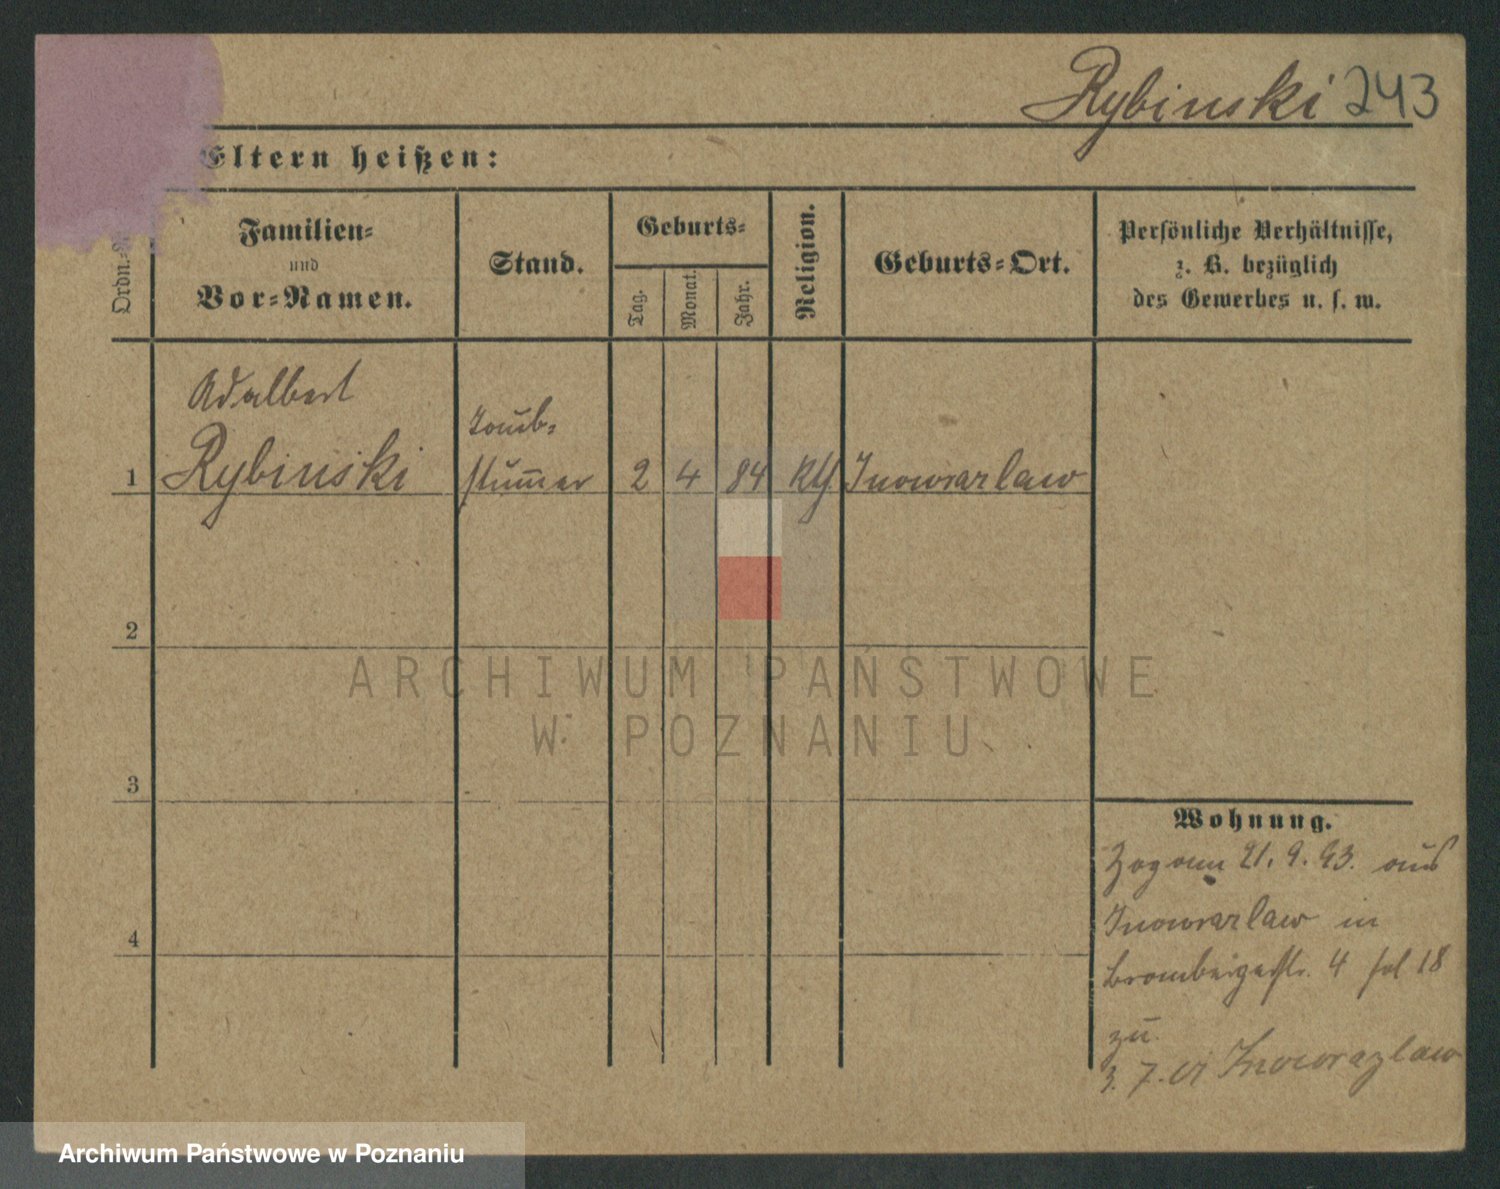 Rybinski 243
Eltern heißen:
Ordn.-
Familien-
und
Vor-Namen.
Stand.
Geburts-
Tag.
Monat.
Jahr.
Religion.
Geburts-Ort.
Persönliche Verhältnisse,
z. B. bezüglich
des Gewerbes u. s. w.
Adalbert
Rybinski
Taub-
stummer
1
2 4 84 kth Inowrazlaw
2
3
4
Wohnung.
Zog am 21. 9. 93. aus
Inowrazlaw in
Brombergerstr. 4 fol 18
zu
3. 7. Inowrazlaw
ARCHIWUM PAŃSTWOWE
W POZNANIU
Archiwum Państwowe w Poznaniu